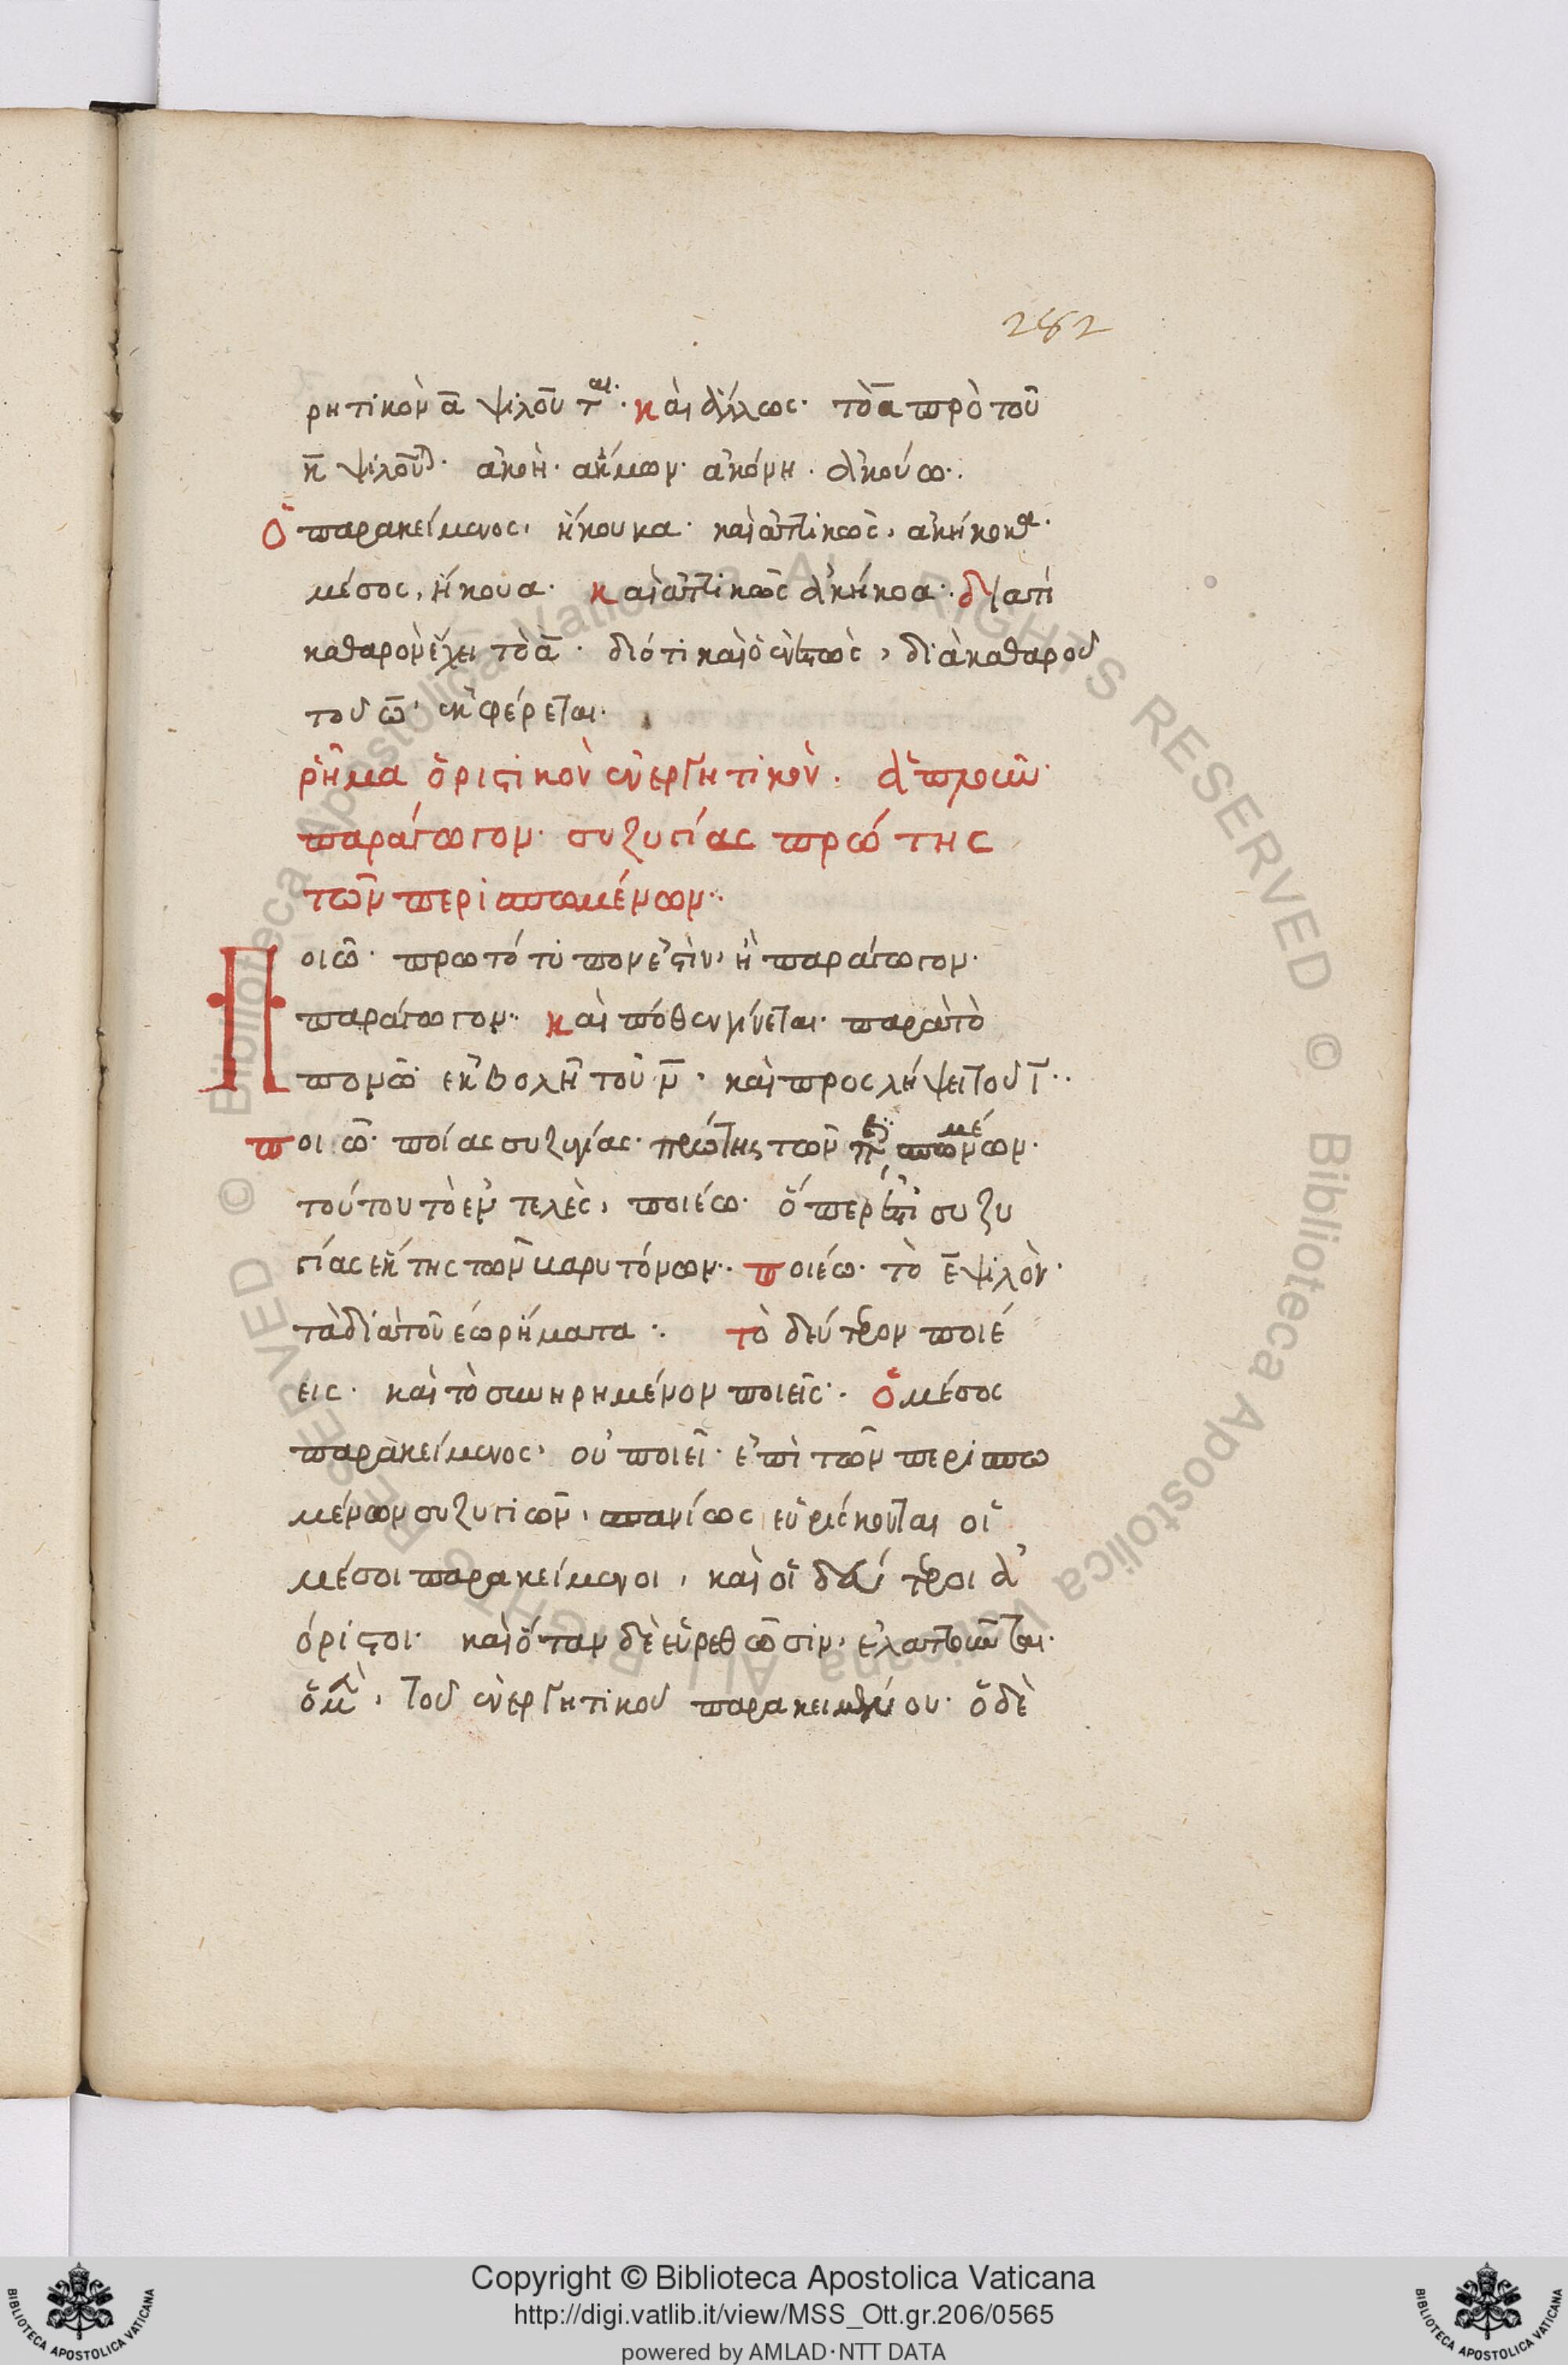 282
ρητικὸν α ψιλοῦται· καὶ ἄλλως· τὸ α πρὸ τοῦ
κ ψιλοῦται· ἀκοὴ· ἄκμων· ἀκόνη· ἀκούω·
ὁ παρακείμενος, ἤκουκα· καὶ ἀττικῶς, ἀκήκοκα·
μέσος, ἤκουα· καὶ ἀττικῶς ἀκήκοα· διατί
καθαρὸν ἔχει τὸ α· διότι καὶ ὁ ἐνεστὼς, διὰ καθαροῦ
τοῦ ω, ἐκφέρεται·
ῥῆμα ὁριστικὸν ἐνεργητικὸν· ἁπλοῦν·
παράγωγον· συζυγίας πρώτης
τῶν περισπωμένων·
Ποιῶ· πρωτότυπον ἐστὶν, ἢ παράγωγον·
παράγωγον· καὶ πόθεν γίνεται· παρὰ τὸ
πονῶ ἐκβολῆ τοῦ ν, καὶ προσλήψει τοῦ ι·
ποιῶ· ποίας συζυγίας· πρώτης τῶν περισπωμένων·
τούτου τὸ ἐντελὲς, ποιέω· ὅπερ ἐστὶ συζυ
γίας ἕκτης τῶν βαρυτόνων· ποιέω· τὸ ε ψιλὸν·
τὰ διὰ τοῦ εω ῥήματα· τὸ δεύτερον ποιέ
εις· καὶ τὸ συνηρημένον ποιεῖς· ὁ μέσος
παρακείμενος, οὐ ποιεῖ· ἐπὶ τῶν περισπω
μένων συζυγιῶν, σπανίως εὑρίσκονται οἱ
μέσοι παρακείμενοι, καὶ οἱ δεύτεροι ἀ
όριστοι· καὶ ὅταν δὲ εὑρεθῶσιν, ἐλαττοῦνται·
ὁ μὲν, τοῦ ἐνεργητικοῦ παρακειμένου· ὁ δὲ
Copyright © Biblioteca Apostolica Vaticana
http://digi.vatlib.it/view/MSS_Ott.gr.206/0565
powered by AMLAD·NTT DATA